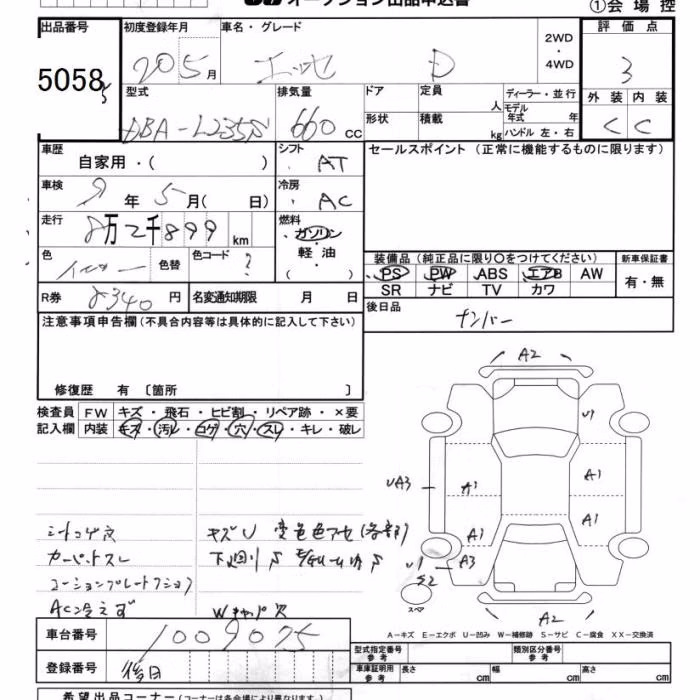 オークション出品申込書
①会場控
出品番号 初度登録年月 車名・グレード 評価点
5058
205月 D 2WD・4WD 3
型式 排気量 ドア 定員 人 ディーラー・並行 外装 内装
DBA-L235S 660cc 形状 積載 kg モデル年式 年 ハンドル 左・右 C C
車歴 自家用・( ) シフト AT セールスポイント (正常に機能するものに限ります)
車検 年 5月( 日) 冷房 AC
走行 8万2千899km 燃料 ・ガソリン・軽油・( )
色 色替 色コード ?
装備品 (純正品に限り○をつけてください) 新車保証書
PS PW ABS エアB AW 有・無
SR ナビ TV カワ
R券 8340円 名変通知期限 月 日
後日品 ナンバー
注意事項申告欄 (不具合内容等は具体的に記入して下さい)
修復歴 有 〔箇所 〕
検査員 FW キズ・飛石・ヒビ割・リペア跡・×要
記入欄 内装 キズ・汚レ・コゲ・穴・スレ・キレ・破レ
A2
U1
UA3 A1 A1
A1 A1
U1 A3
S2
スペア
A2
シートコゲ穴 キズU 変色色アセ(各部)
カーペットスレ 下廻りS
コーションプレート
AC冷えず Wキャパ欠
A-キズ E-エクボ U-凹み W-補修跡 S-サビ C-腐食 XX-交換済
車台番号 1009075
型式指定番号 参考 類別区分番号 参考
登録番号 後日
車庫証明用 参考 長さ cm 幅 cm 高さ cm
希望出品コーナー (コーナーは各会場により異なります)